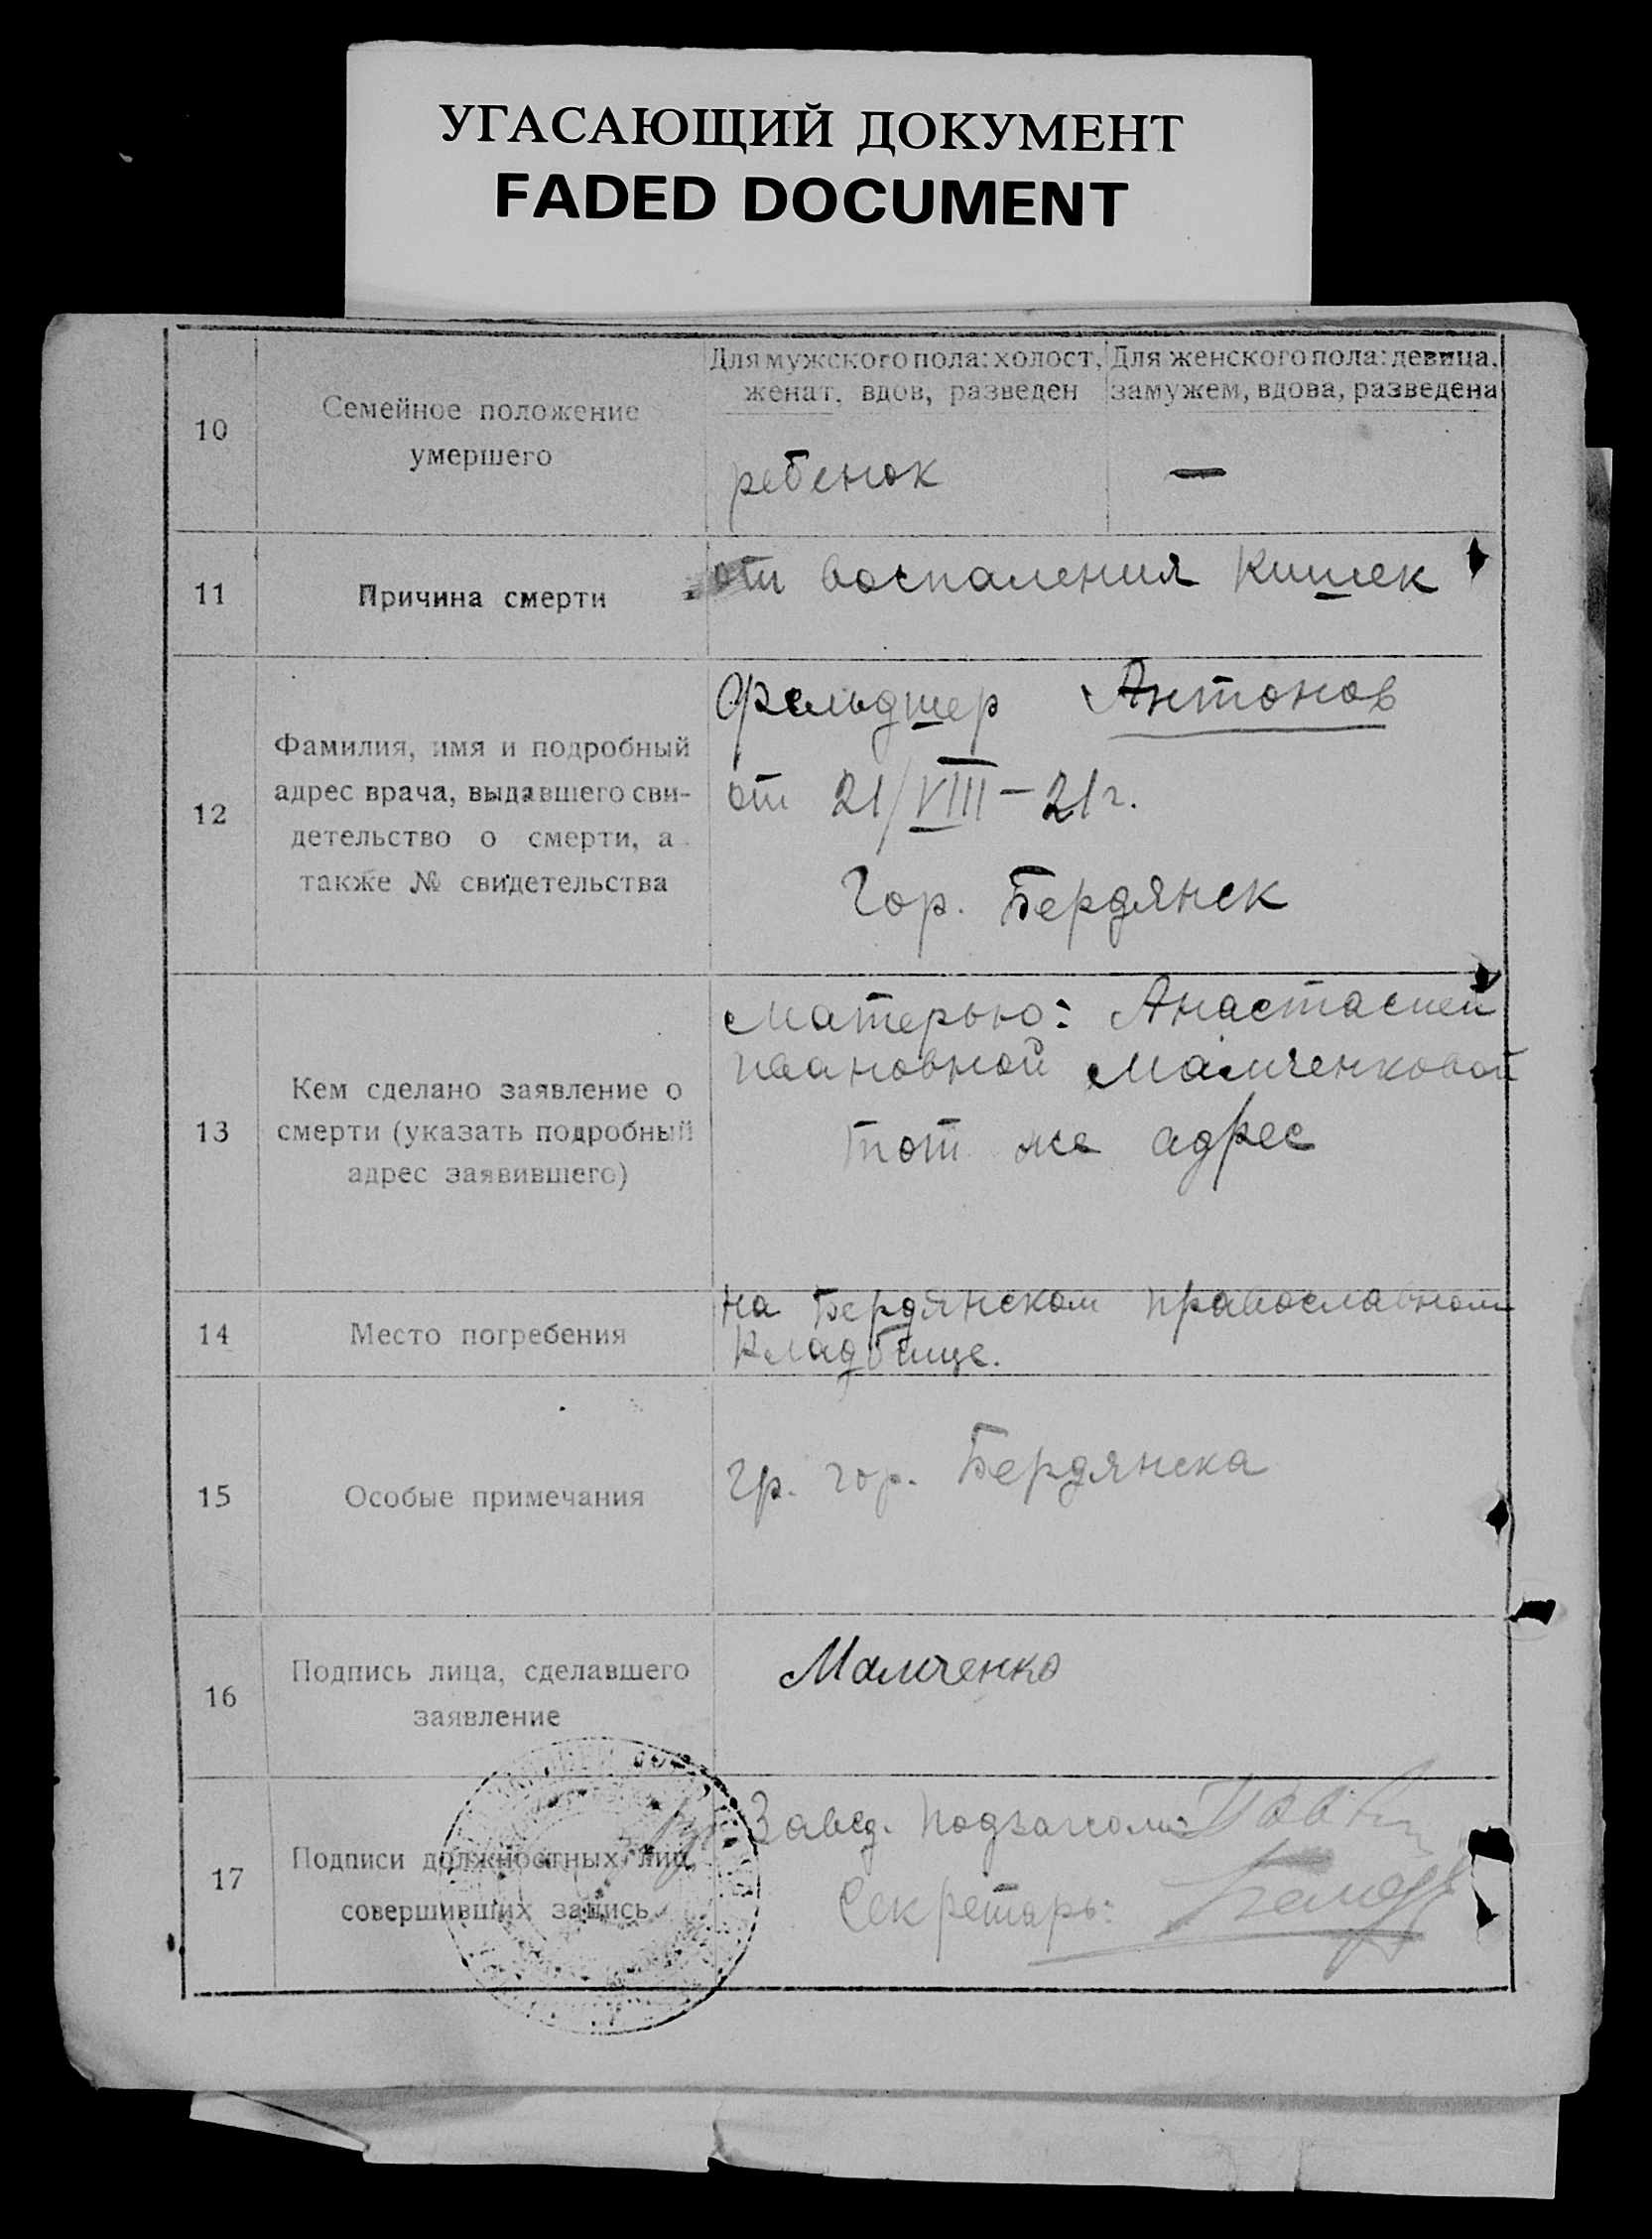 УГАСАЮЩИЙ ДОКУМЕНТ
FADED DOCUMENT
10
Семейное положение
умершего
Для мужского пола: холост,
женат, вдов, разведен
Для женского пола: девица,
замужем, вдова, разведена
ребенок
—
11
Причина смерти
от воспаления кишек
12
Фамилия, имя и подробный
адрес врача, выдавшего сви-
детельство о смерти, а
также № свидетельства
Фельдшер Антонов
от 21/VIII – 21 г.
Гор. Бердянск
13
Кем сделано заявление о
смерти (указать подробный
адрес заявившего)
Матерью: Анастасией
Ивановной Мамченковой
тот же адрес
14
Место погребения
на Бердянском православном
кладбище.
15
Особые примечания
гр. гор. Бердянска
16
Подпись лица, сделавшего
заявление
Мамченко
17
Подписи должностных лиц,
совершивших запись
Завед. Подзагсом:
Секретарь: